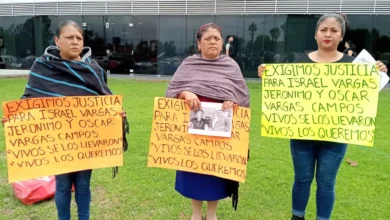 EXIGIMOS JUSTICIA
PARA ISRAEL VARGAS
JERONIMO Y OSCAR
VARGAS CAMPOS
VIVOS SE LOS LLEVARON
"VIVOS LOS QUEREMOS"
EXIGIMOS
PARA
JERONIMO
VARGAS
VIVOS SE LOS LLEVARON
VIVOS LOS QUEREMOS
EXIGIMOS JUSTICIA
PARA ISRAEL VARGAS
JERONIMO Y OSCAR
VARGAS CAMPOS
VIVOS SE LOS LLEVARON
VIVOS LOS QUEREMOS